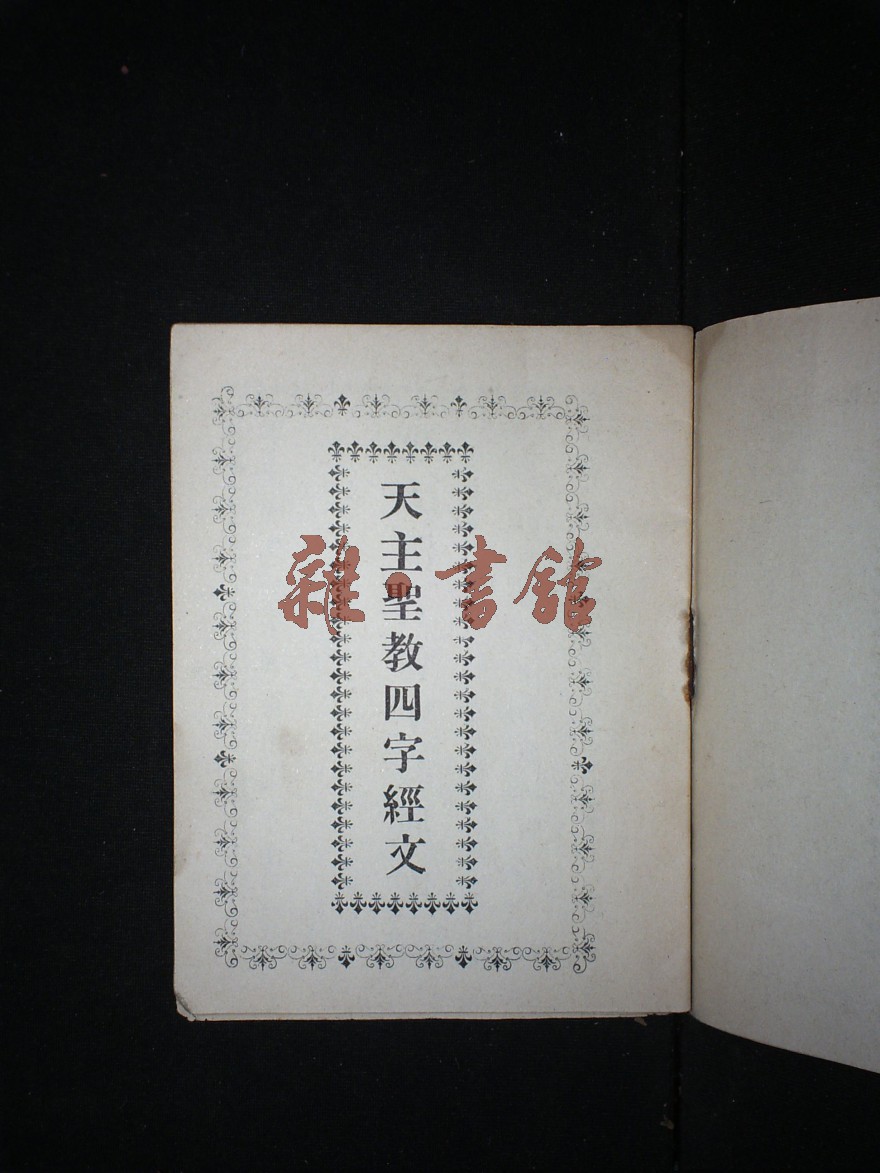 天主聖教四字經文
雜·書館